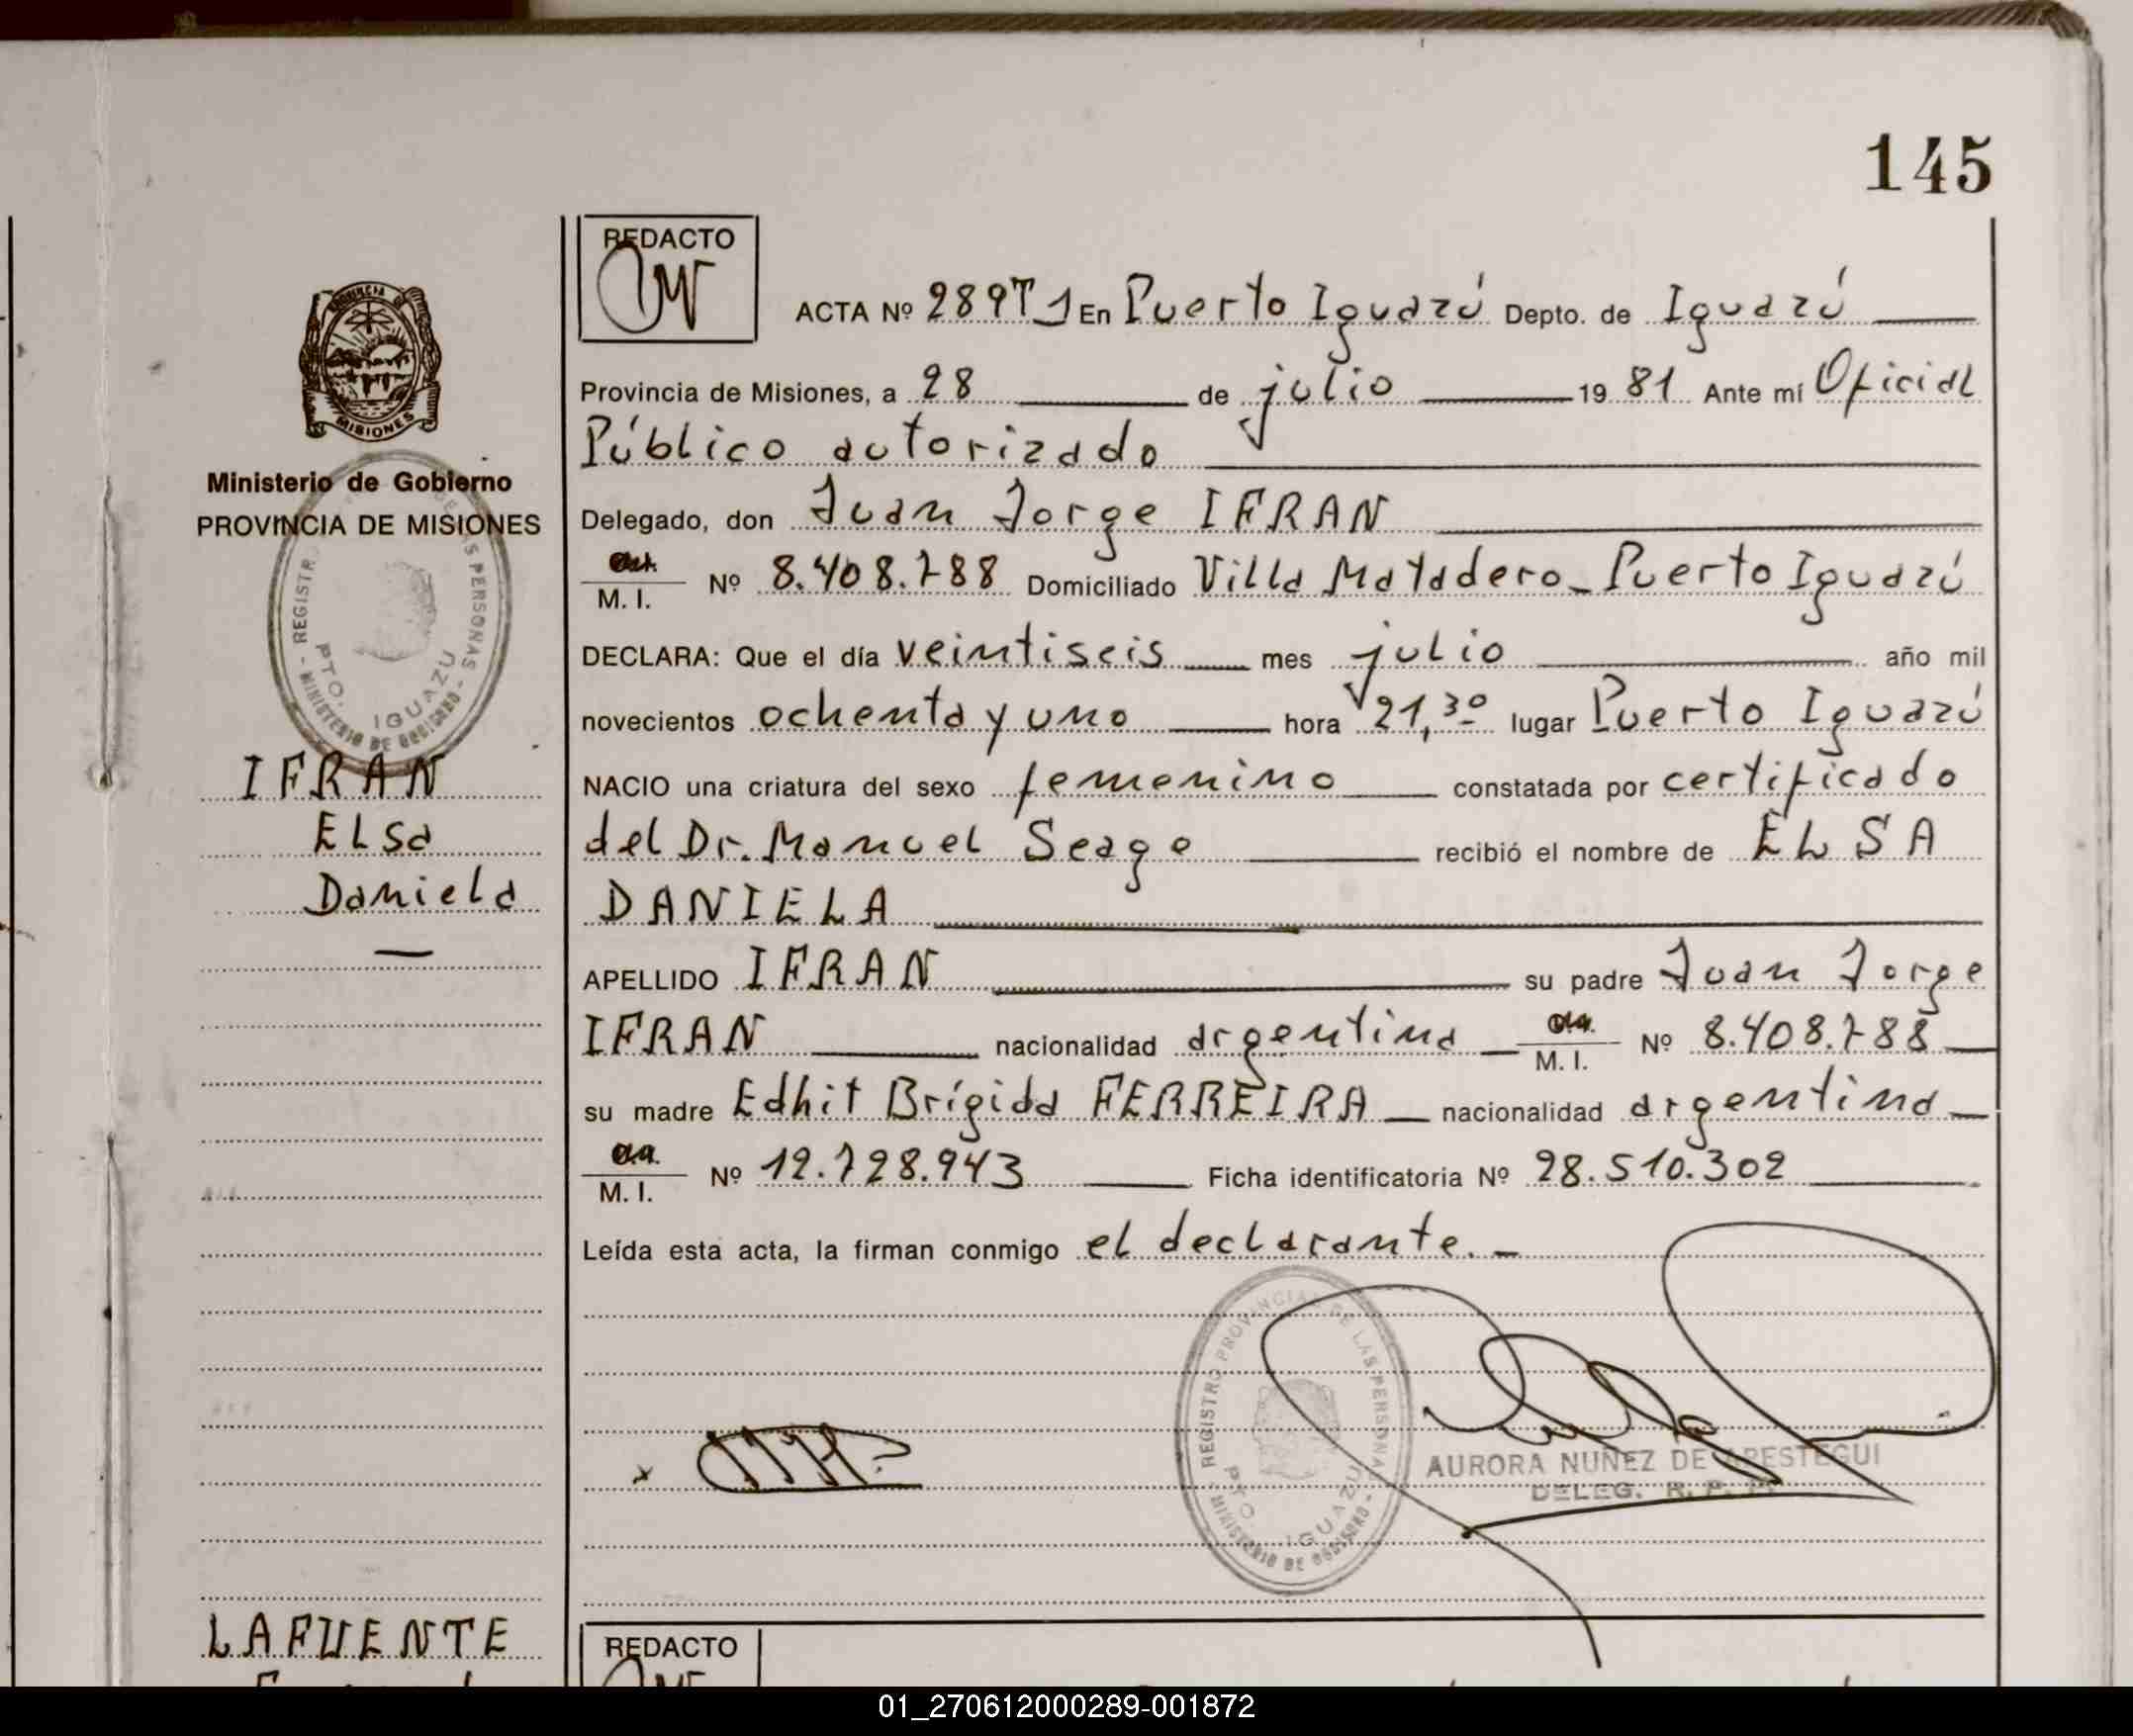 145
REDACTO
ACTA Nº 289T1 En Puerto Iguazú Depto. de Iguazú
Provincia de Misiones, a 28 de julio 1981 Ante mí Oficial
Público autorizado
Delegado, don Juan Jorge IFRAN
M. I. Nº 8.408.788 Domiciliado Villa Matadero - Puerto Iguazú
DECLARA: Que el día veintiseis mes julio año mil
novecientos ochenta y uno hora 21,30 lugar Puerto Iguazú
NACIO una criatura del sexo femenino constatada por certificado
del Dr. Manuel Seago recibió el nombre de ELSA
DANIELA
APELLIDO IFRAN su padre Juan Jorge
IFRAN nacionalidad argentina M. I. Nº 8.408.788
su madre Edhit Brígida FERREIRA nacionalidad argentina
M. I. Nº 12.728.943 Ficha identificatoria Nº 28.510.302
Leída esta acta, la firman conmigo el declarante.
REGISTRO PROVINCIAL DE LAS PERSONAS
MINISTERIO DE GOBIERNO
PTO. IGUAZU
AURORA NUÑEZ DE APESTEGUI
DELEG. R. P. P.
PROVINCIA DE
MISIONES
Ministerio de Gobierno
PROVINCIA DE MISIONES
REGISTR DE LAS PERSONAS
MINISTERIO DE GOBIERNO
PTO. IGUAZU
IFRAN
ELSA
Daniela
LAFUENTE
REDACTO
01_270612000289-001872